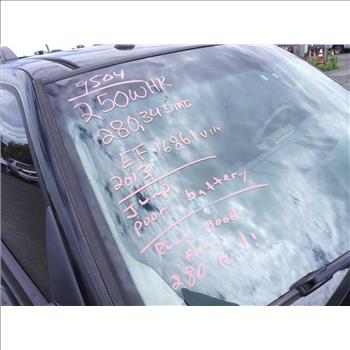 9504
250WHK
280,343 mi
EF16861 vin
2013
Jump
poor battery
Runs good
for
280 K!!